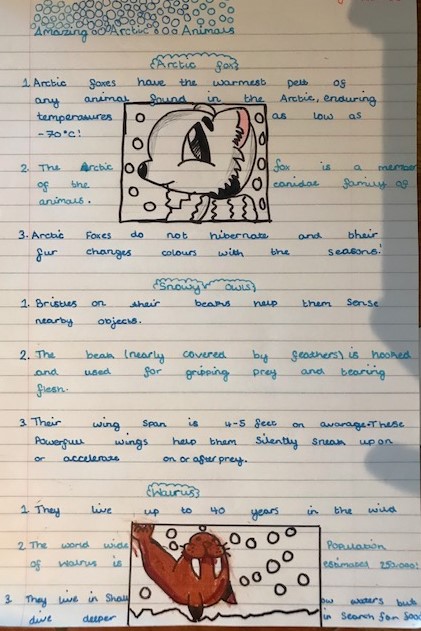 Amazing Arctic Animals
Arctic fox
1. Arctic foxes have the warmest pelt of
any animal found in the Arctic, enduring
temperasures as low as
-70°C!
2. The Arctic fox is a member
of the canidae family of
animals.
3. Arctic Foxes do not hibernate and their
fur changes colours with the seasons!
Snowy owls
1. Bristles on their beaks help them sense
nearby objects.
2. The beak (nearly covered by feathers) is hooked
and used for gripping prey and tearing
flesh.
3. Their wing span is 4-5 feet on avarage. These
Powerfull wings help them silently sneak up on
or accelerate on or after prey.
Walrus
1. They live up to 40 years in the wild
2. The world wide Population
of walrus is estimated 250,000!
3 They live in Shallow waters but
dive deeper in search for food